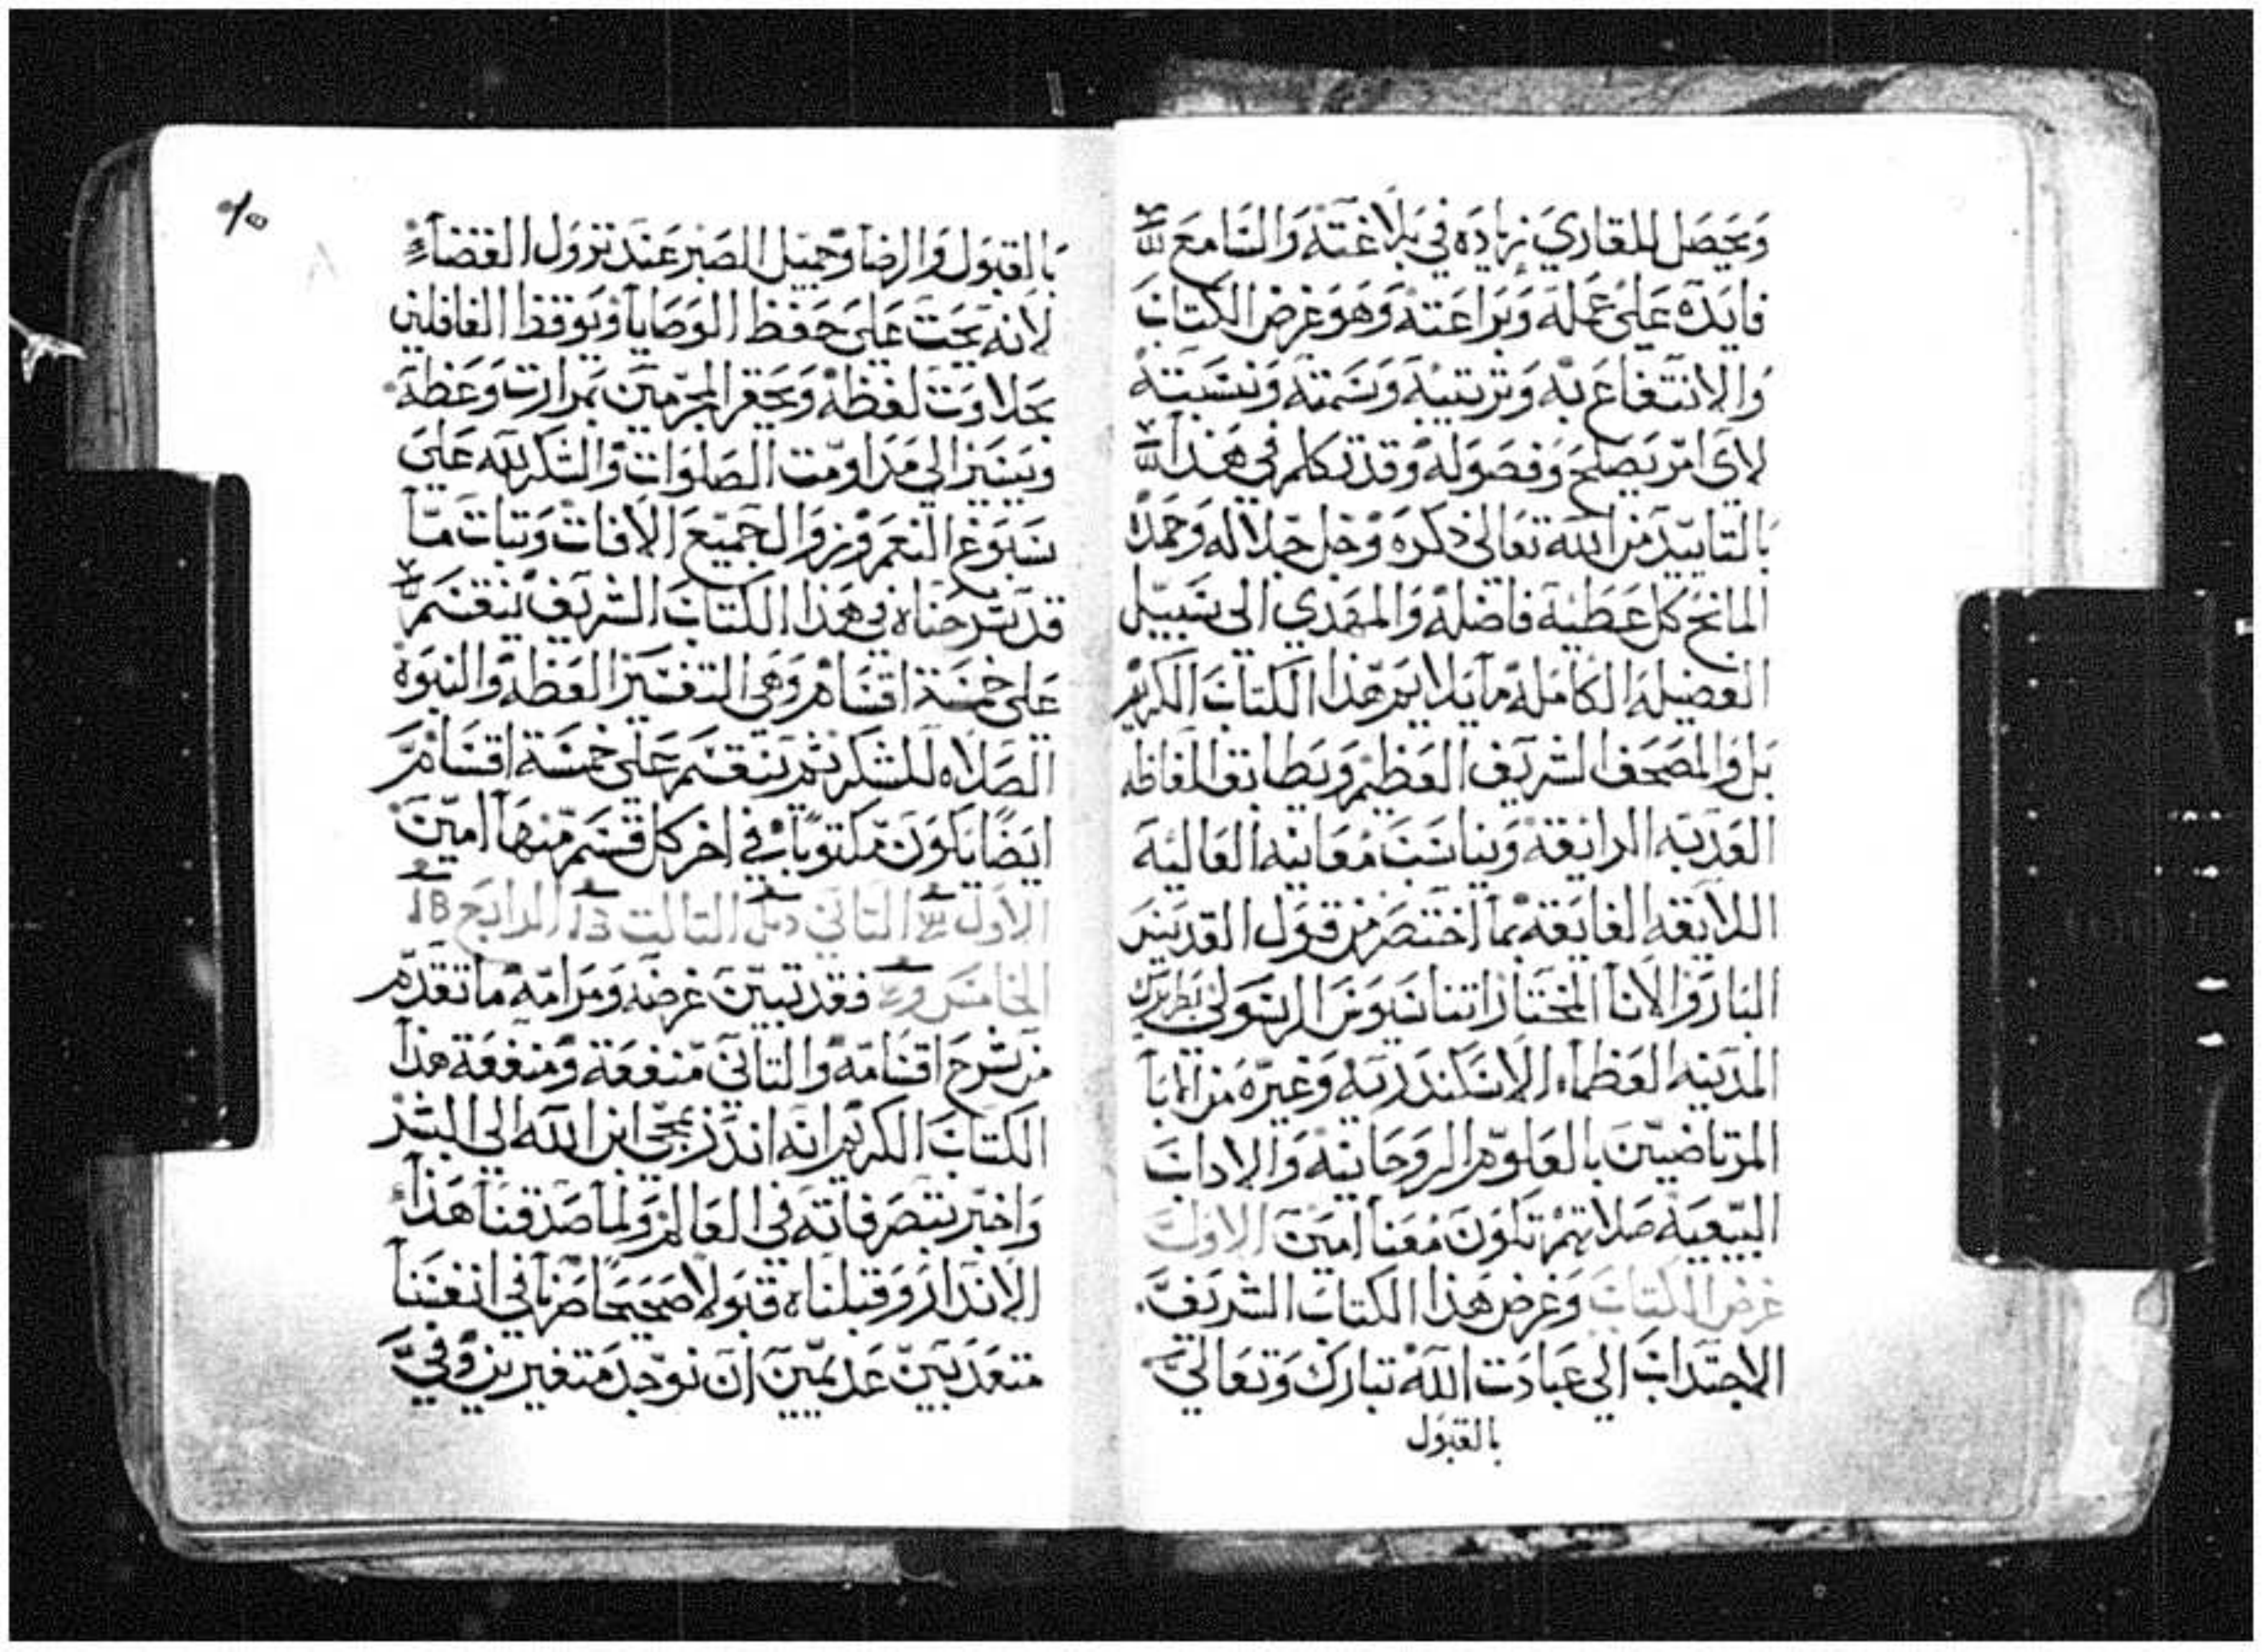 ويحصل للقاري زياده في بلاغته والسامع
فايده على عمله وبراعته وهو غرض الكتاب
والانتفاع به وترتيبه وسمته ونسبته
لاي امر يصلح وفصوله وقد تكلم في هذا
بالتاييد من الله تعالى ذكره وجل جلاله وحمده
المانح كل عطية فاضله والمهدي الى سبيل
الفضيله الكامله ما يلايم هذا الكتاب الكريم
بل والمصحف الشريف العظيم ويطابق الفاظه
العذبه الرايقة ويناسب معانيه العاليه
اللايقه الفايقه بما اختصر من قول القديس
البار والانا المختار اتناسيوس الرسولي بطريرك
المدينه العظماء الاسكندريه وغيره من الابا
المرتاضيين بالعلوم الروحانية والاداب
البيعية صلاتهم تكون معنا امين الاول
غرض الكتاب وغرض هذا الكتاب الشريف
الاجتداب الى عبادت الله تبارك وتعالي
بالقبول
بالقبول والرضا وجميل الصبر عند نزول القضاء
لانه يحت على حفظ الوصايا ويوقظ الغافلين
بحلاوت لفظه ويحقر المجرمين بمرارت وعظه
ويشير الى مداومت الصلوات والشكر لله على
سبوغ النعم وزوال جميع الافات وتبات ما
قد شرحناه في هذا الكتاب الشريف ينقسم
على خمسة اقسام وهي التفسير العظه والنبوة
الصلاه الشكر ثم ينقسم على خمسة اقسام
ايضا يكون مكتوبا في اخر كل قسم منها امين
الاول التاني التالت الرابع
الخامس فقد تبين غرضه ومرامه ما تقدم
من شرح اقسامه والتاني منفعة ومنفعة هذا
الكتاب الكريم انه اندر بمجي ابن الله الى البشر
واخبر بتصرفاته في العالم ولما صدقنا هذا
الاندار وقبلناه قبولا صحيحا صرنا في انفسنا
متعدبين عديمين ان نوجد متغيرين وفي